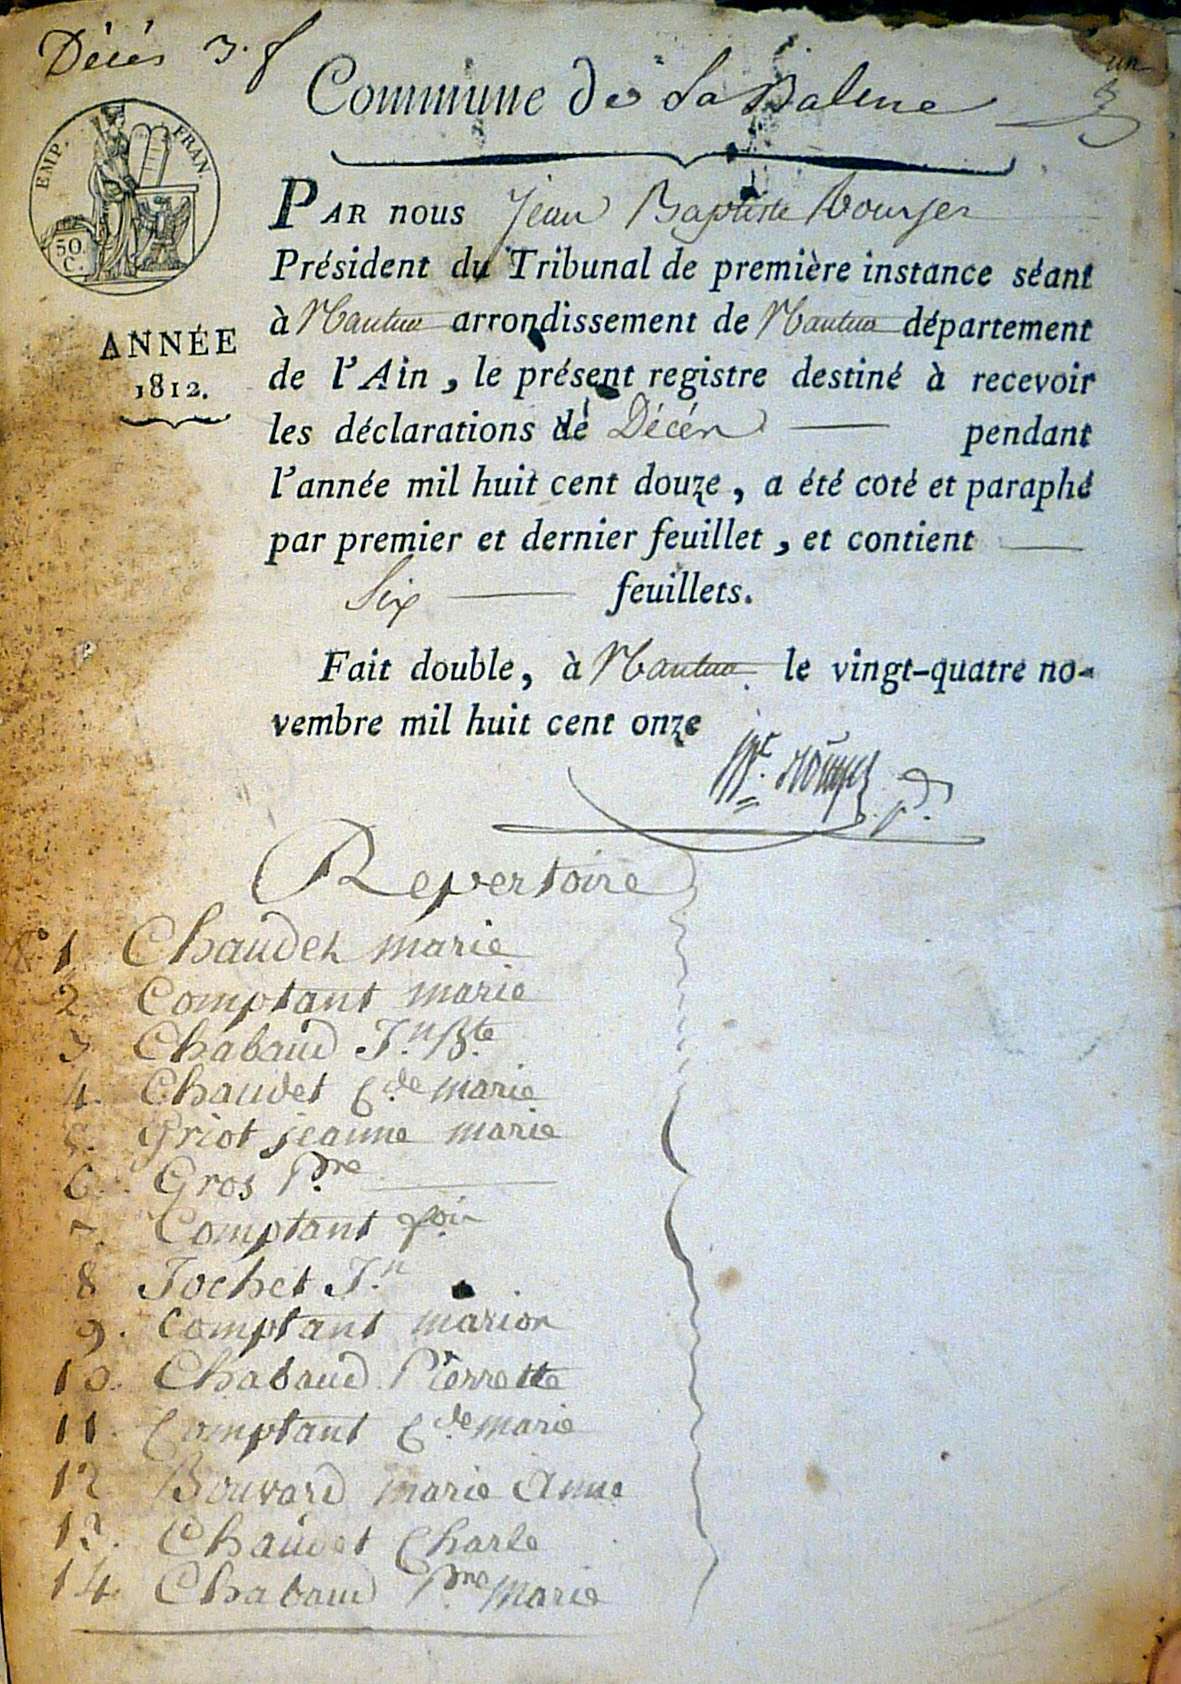 Décés 3. f
un
Commune de La Balme
EMP. FRAN.
50
C.
PAR nous Jean Baptiste
Président du Tribunal de première instance séant
à Nantua arrondissement de Nantua département
ANNÉE
1812.
de l'Ain, le présent registre destiné à recevoir
les déclarations de Décés pendant
l'année mil huit cent douze, a été coté et paraphé
par premier et dernier feuillet, et contient
Six feuillets.
Fait double, à Nantua le vingt-quatre no-
vembre mil huit cent onze
Repertoire
1 Chaudet marie
2 Comptant marie
3 Chabaud J.n B.te
4. Chaudet C.de marie
5. Griot jeanne marie
6. Gros P.re
7. Comptant
8 Jochet J.n
9. Comptant marion
10. Chabaud Pierrette
11. Comptant C.de marie
12 Bouvard marie Anne
13. Chaudet Charle
14. Chabaud P.ne Marie